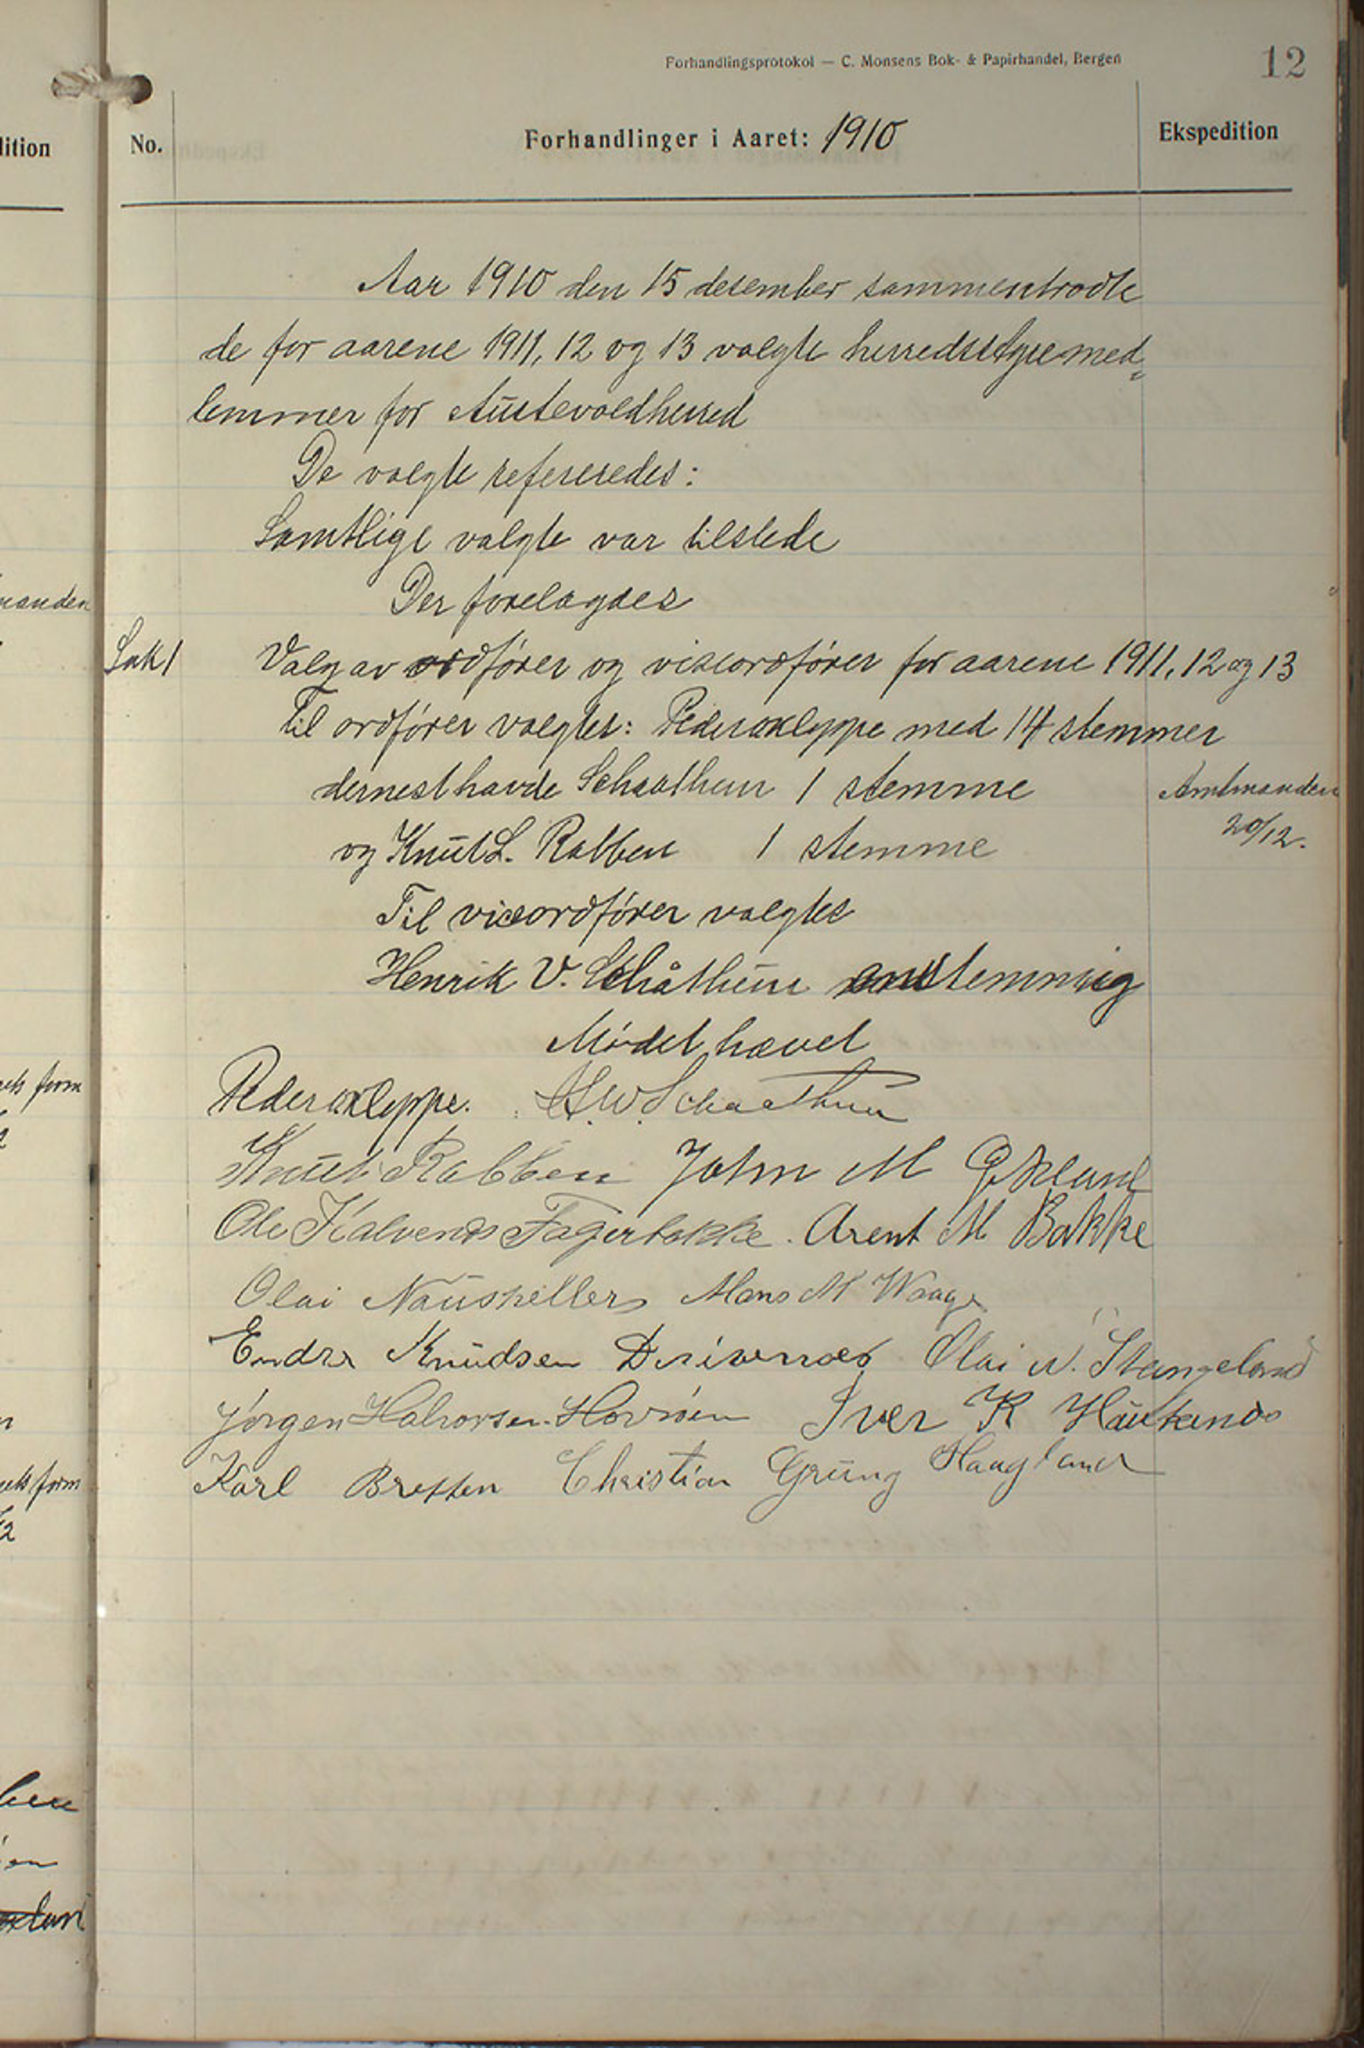 Forhandlingsprotokol — C. Monsens Bok- & Papirhandel, Bergen
12
lition
No.
Forhandlinger i Aaret: 1910
Ekspedition
Aar 1910 den 15 desember sammentraadte
de for aarene 1911, 12 og 13 valgte herredsstyremed=
lemmer for Austevoldherred
De valgte refereredes:
Samtlige valgte var tilstede
Der forelagdes
Sak 1
Valg av ordfører og viseordfører for aarene 1911, 12 og 13
Til ordfører valgtes: Peder Kleppe med 14 stemmer
dernest havde Schaathun 1 stemme
Amtmanden
20/12.
og Knut L. Rabben 1 stemme
Til viceordfører valgtes
Henrik V. Schåthun enstemmig
Mødet hævet
Peder Kleppe. H. W. Schaathun
Knut Rabben John M Økland
Ole Halvends Fagerbakke. Arent M Bakke
Olai Nausheller Mons M Waage
Endre Knudsen Drivenæs Olai N. Stangeland
Jørgen Halvorsen Horvøen Iver K Haukanæs
Karl Bretten Christian Grung Haagland